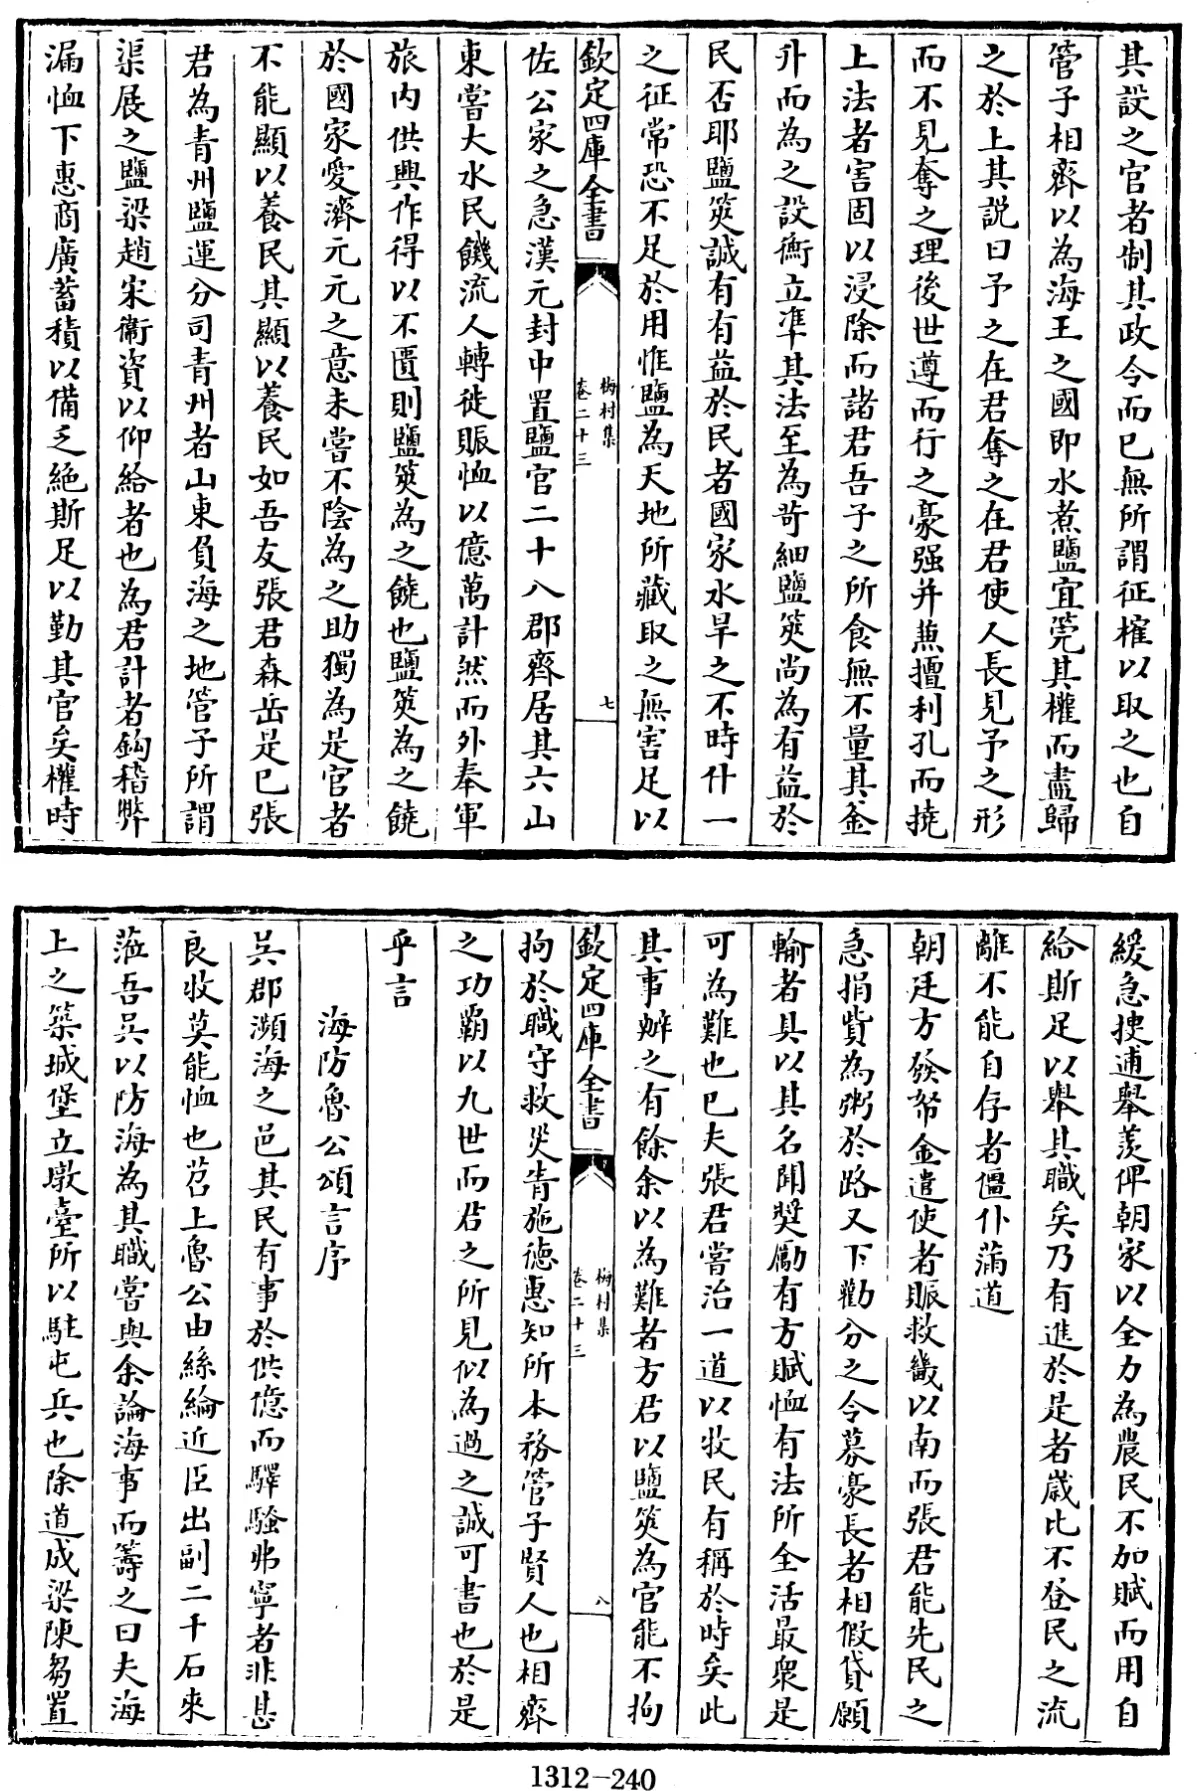 其設之官者制其政令而已無所謂征榷以取之也自
管子相齊以為海王之國即水煮鹽宜筦其權而盡歸
之於上其説曰予之在君奪之在君使人長見予之形
而不見奪之理後世遵而行之豪强并兼擅利孔而撓
上法者害固以浸除而諸君吾子之所食無不量其釜
升而為之設衡立凖其法至為苛細鹽筴尚為有益於
民否耶鹽筴誠有有益於民者國家水旱之不時什一
之征常恐不足於用惟鹽為天地所藏取之無害足以
欽定四庫全書
梅村集
卷二十三
七
佐公家之急漢元封中置鹽官二十八郡齊居其六山
東嘗大水民饑流人轉徙賑恤以億萬計然而外奉軍
旅内供興作得以不匱則鹽筴為之饒也鹽筴為之饒
於國家愛濟元元之意未嘗不陰為之助獨為是官者
不能顯以養民其顯以養民如吾友張君森岳是已張
君為青州鹽運分司青州者山東負海之地管子所謂
渠展之鹽梁趙宋衞資以仰給者也為君計者鈎稽弊
漏恤下惠商廣蓄積以備乏絶斯足以勤其官矣權時
緩急㨗逋舉羡俾朝家以全力為農民不加賦而用自
給斯足以舉其職矣乃有進於是者嵗比不登民之流
離不能自存者僵仆滿道
朝廷方發帑金遣使者賑救畿以南而張君能先民之
急捐貲為粥於路又下勸分之令募豪長者相假貸願
輸者具以其名聞奬勵有方賦恤有法所全活最衆是
可為難也已夫張君嘗治一道以牧民有稱於時矣此
其事辦之有餘余以為難者方君以鹽筴為官能不拘
欽定四庫全書
梅村集
卷二十三
八
拘於職守救災眚施德惠知所本務管子賢人也相齊
之功覇以九世而君之所見似為過之誠可書也於是
乎言
海防魯公頌言序
吳郡瀕海之邑其民有事於供億而驛騷弗寧者非甚
良牧莫能恤也苕上魯公由絲綸近臣出副二千石來
蒞吾吳以防海為其職嘗與余論海事而籌之曰夫海
上之築城堡立墩臺所以駐屯兵也除道成梁陳芻置
1312-240